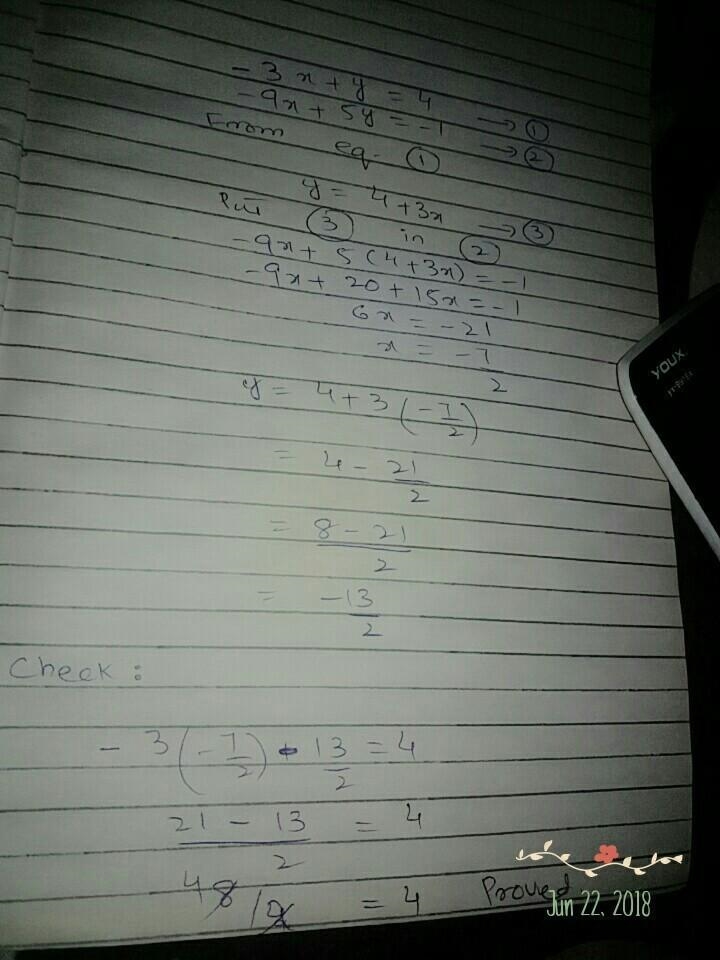 -3x + y = 4 → ①
-9x + 5y = -1 → ②
From eq. ①
y = 4 + 3x → ③
Put ③ in ②
-9x + 5(4+3x) = -1
-9x + 20 + 15x = -1
6x = -21
x = -7/2
y = 4 + 3(-7/2)
= 4 - 21/2
= 8 - 21/2
= -13/2
Check :
- 3(-7/2) - 13/2 = 4
21 - 13/2 = 4
4 8/2 = 4 Proved
YOUX
Jun 22, 2018